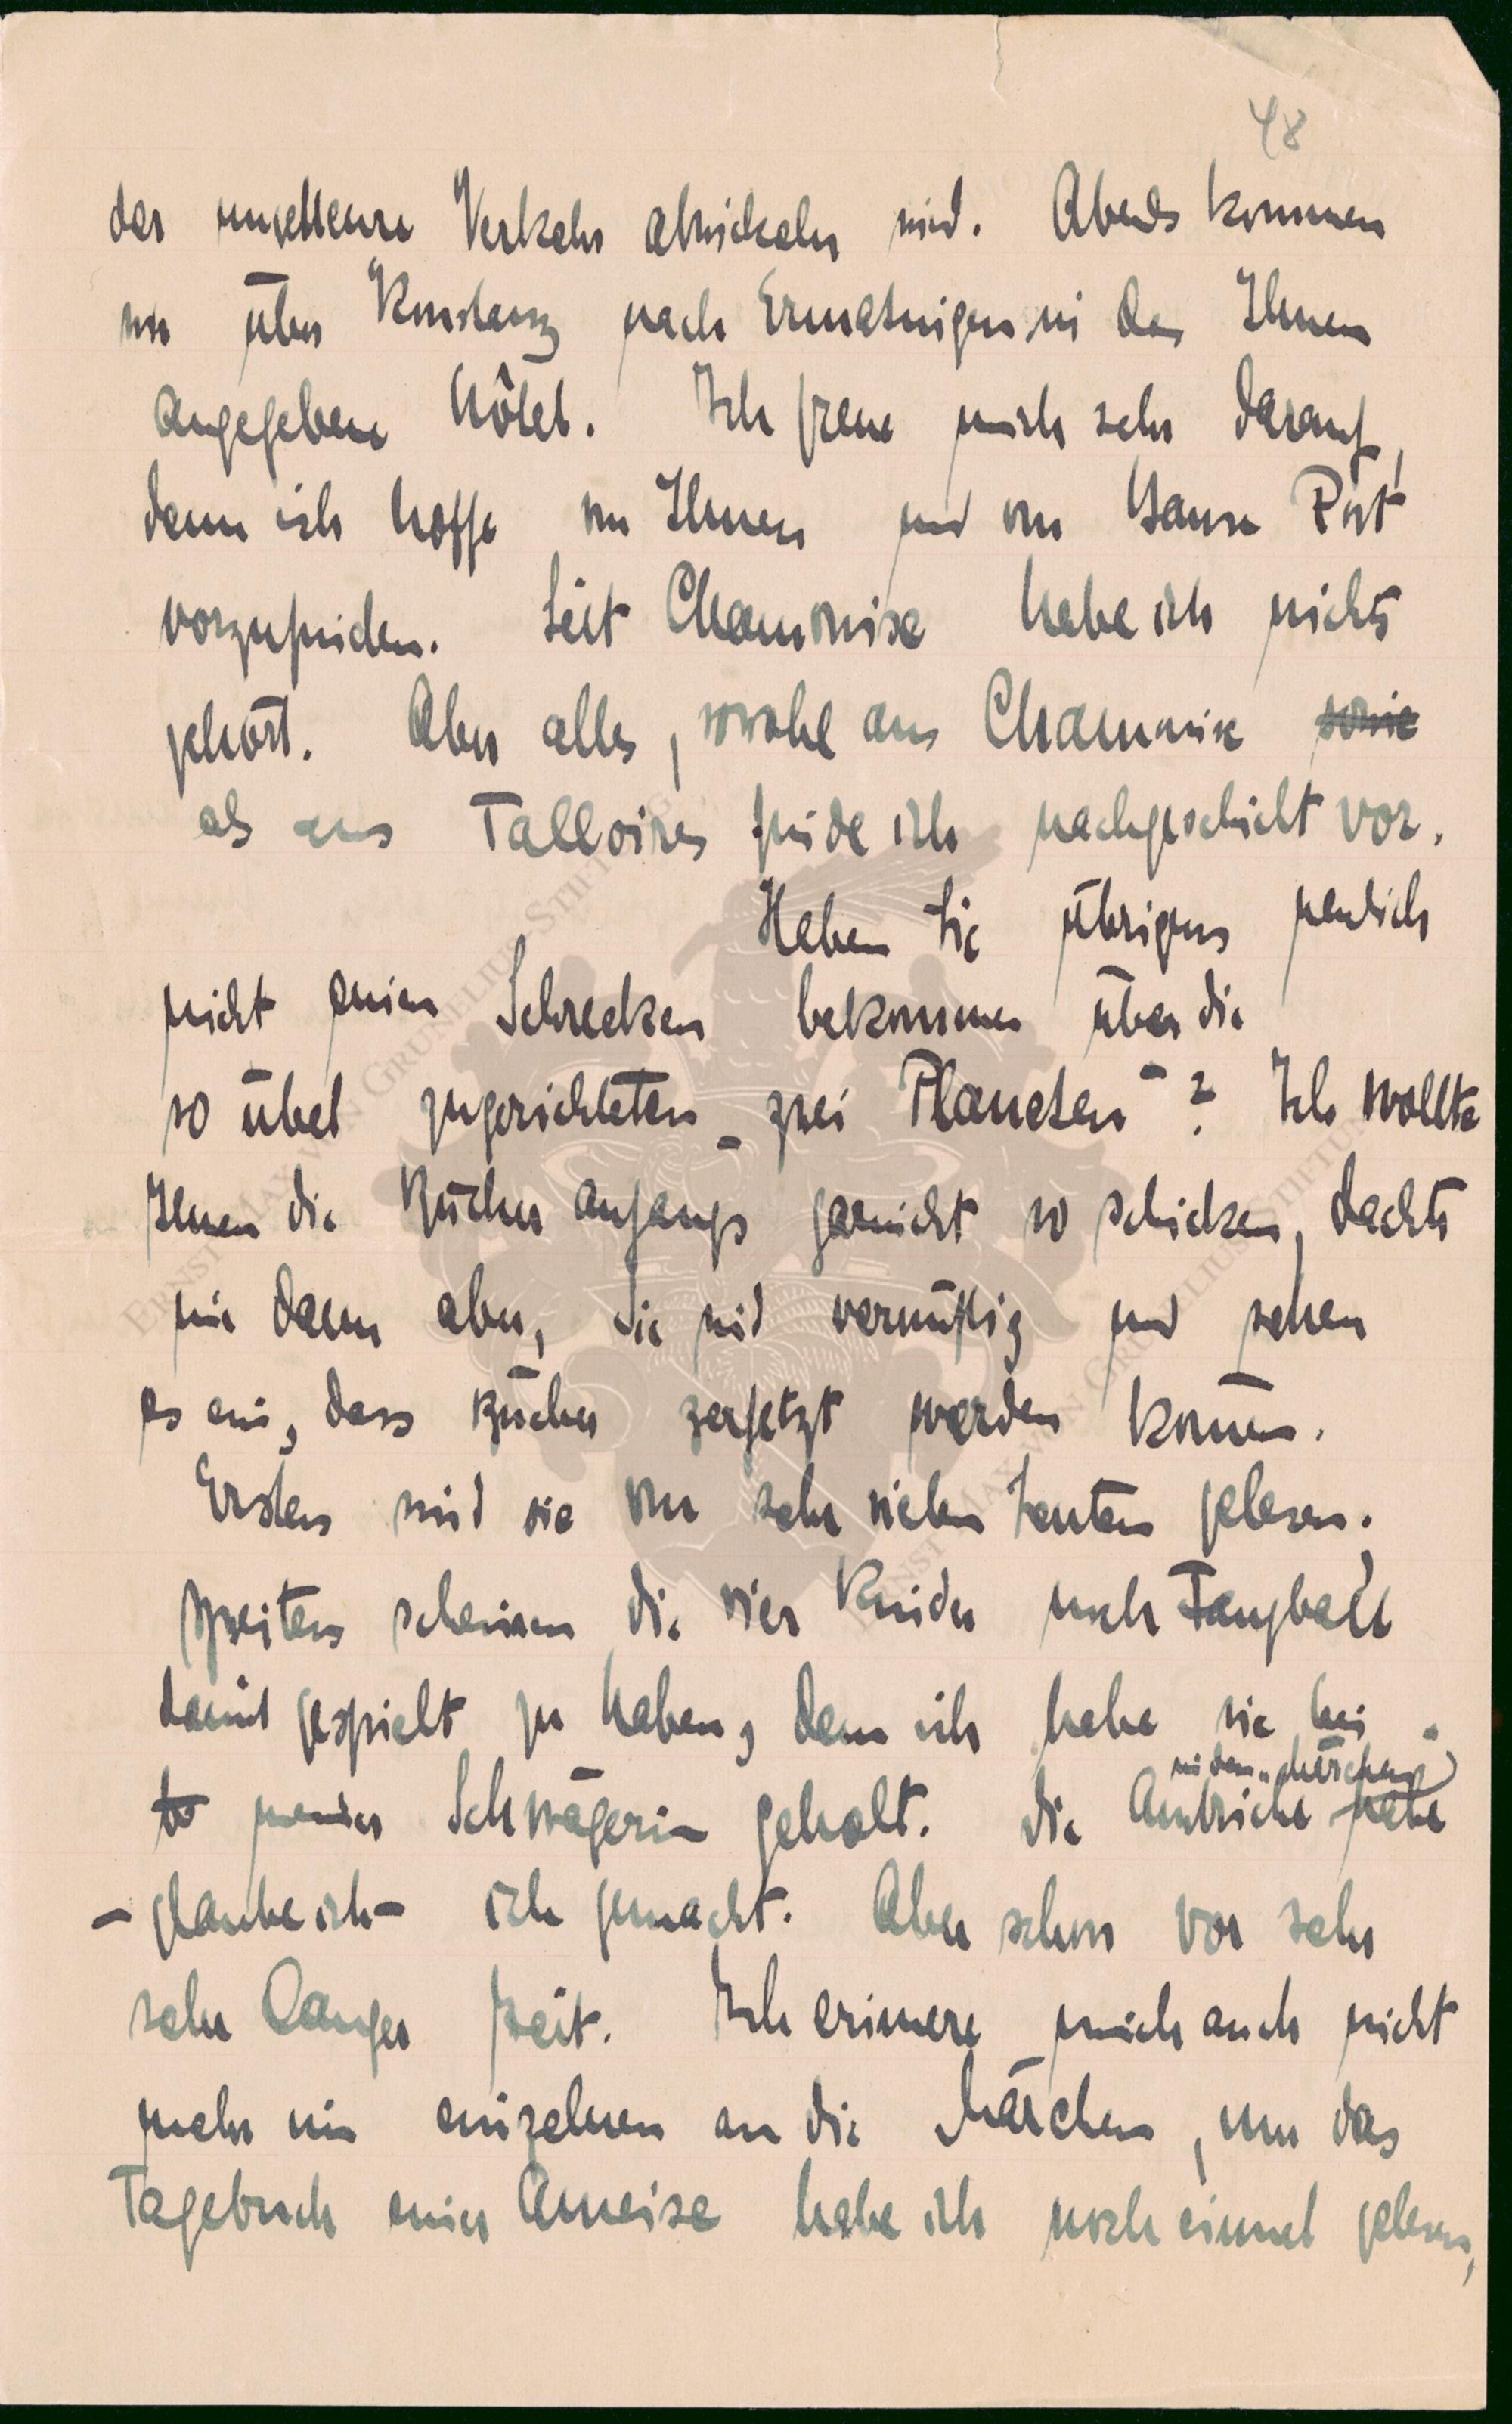 48
der ungeheure Verkehr abwickeln wird. Abends kommen
wir über Konstanz nach Ermatingen in das Ihnen
angegebene Hôtel. Ich freue mich sehr darauf,
denn ich hoffe von Ihnen und von Hause Post
vorzufinden. Seit Chamonix habe ich nichts
gehört. Aber alles, sowohl aus Chamonix sowie
als aus Talloires finde ich nachgeschickt vor.
Haben Sie übrigens neulich
nicht einen Schrecken bekommen über die
so übel zugerichteten „zwei Planeten“? Ich wollte
Ihnen die Bücher anfangs garnicht so schicken, dachte
mir dann aber, Sie sind vernünftig und sehen
es ein, dass Bücher zerfetzt werden können.
Erstens sind sie von sehr vielen Leuten gelesen,
zweitens scheinen die vier Kinder noch Fangball
damit gespielt zu haben, denn ich habe sie bei
in den „Märchen“
meiner Schwägerin geholt. Die Anstriche habe
- glaube ich - ich gemacht. Aber schon vor sehr
sehr langer Zeit. Ich erinnere mich auch nicht
mehr im einzelnen an die Märchen, nur das
Tagebuch einer Ameise habe ich noch einmal gelesen,
ERNST MAX VON GRUNELIUS STIFTUNG
ERNST MAX VON GRUNELIUS STIFTUNG